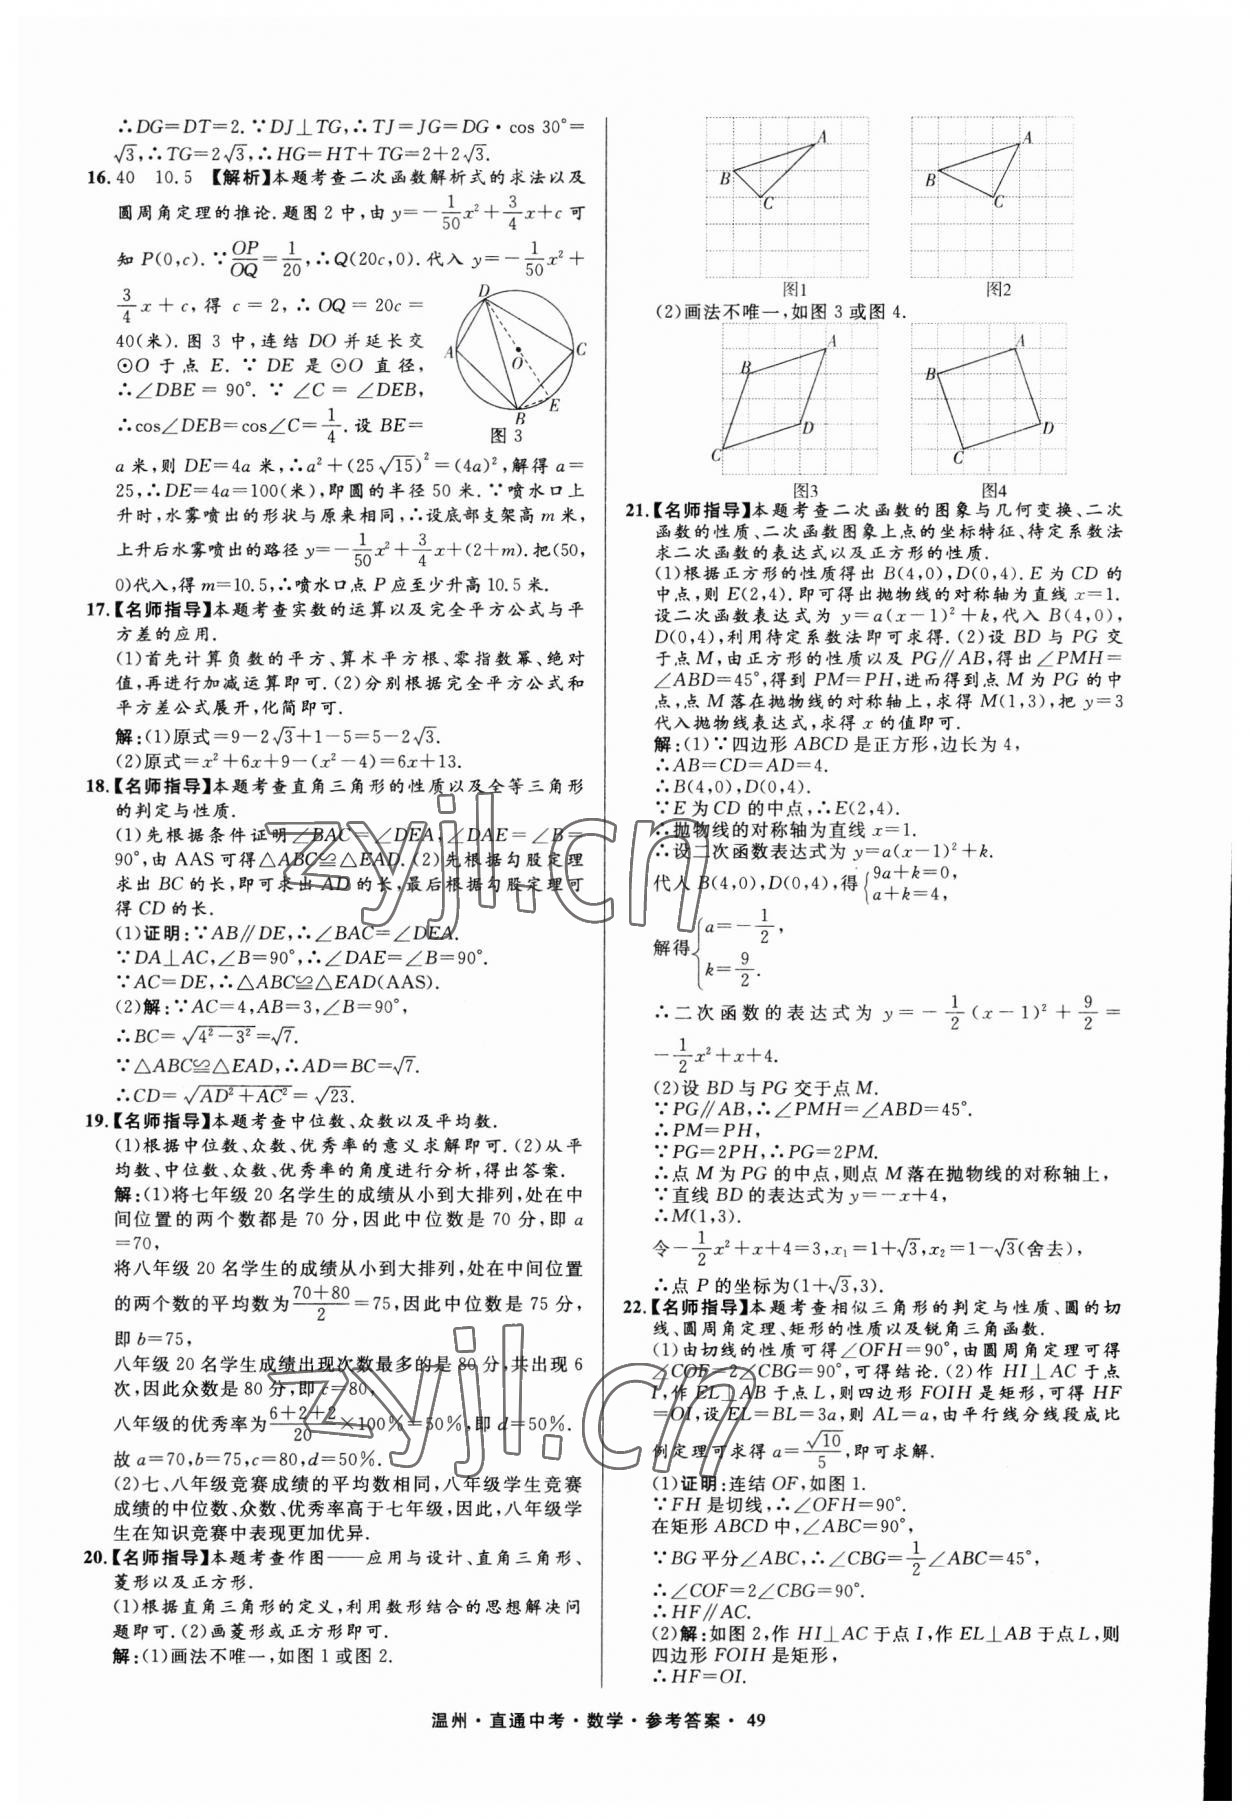 ∴DG=DT=2.∵DJ⊥TG,∴TJ=JG=DG·cos 30°=
√3,∴TG=2√3,∴HG=HT+TG=2+2√3.
16. 40 10.5 【解析】本题考查二次函数解析式的求法以及
圆周角定理的推论.题图2中,由 y=-1/50x²+3/4x+c 可
知 P(0,c).∵OP/OQ=1/20,∴Q(20c,0).代入 y=-1/50x²+
3/4x+c,得 c=2,∴OQ=20c=
40(米).图3中,连结 DO 并延长交
⊙O 于点 E.∵DE 是⊙O 直径,
∴∠DBE=90°.∵∠C=∠DEB,
∴cos∠DEB=cos∠C=1/4.设 BE=
D
A
O
C
B
E
图3
a 米,则 DE=4a 米,∴a²+(25√15)²=(4a)²,解得 a=
25,∴DE=4a=100(米),即圆的半径50米.∵喷水口上
升时,水雾喷出的形状与原来相同,∴设底部支架高 m 米,
上升后水雾喷出的路径 y=-1/50x²+3/4x+(2+m).把(50,
0)代入,得 m=10.5,∴喷水口点 P 应至少升高10.5米.
17.【名师指导】本题考查实数的运算以及完全平方公式与平
方差的应用.
(1)首先计算负数的平方、算术平方根、零指数幂、绝对
值,再进行加减运算即可.(2)分别根据完全平方公式和
平方差公式展开,化简即可.
解:(1)原式=9-2√3+1-5=5-2√3.
(2)原式=x²+6x+9-(x²-4)=6x+13.
18.【名师指导】本题考查直角三角形的性质以及全等三角形
的判定与性质.
(1)先根据条件证明∠BAC=∠DEA,∠DAE=∠B=
90°,由 AAS 可得△ABC≌△EAD.(2)先根据勾股定理
求出 BC 的长,即可求出 AD 的长,最后根据勾股定理可
得 CD 的长.
(1)证明:∵AB∥DE,∴∠BAC=∠DEA.
∵DA⊥AC,∠B=90°,∴∠DAE=∠B=90°.
∵AC=DE,∴△ABC≌△EAD(AAS).
(2)解:∵AC=4,AB=3,∠B=90°,
∴BC=√(4²-3²)=√7.
∵△ABC≌△EAD,∴AD=BC=√7.
∴CD=√(AD²+AC²)=√23.
19.【名师指导】本题考查中位数、众数以及平均数.
(1)根据中位数、众数、优秀率的意义求解即可.(2)从平
均数、中位数、众数、优秀率的角度进行分析,得出答案.
解:(1)将七年级20名学生的成绩从小到大排列,处在中
间位置的两个数都是70分,因此中位数是70分,即 a
=70,
将八年级20名学生的成绩从小到大排列,处在中间位置
的两个数的平均数为(70+80)/2=75,因此中位数是75分,
即 b=75,
八年级20名学生成绩出现次数最多的是80分,共出现6
次,因此众数是80分,即 c=80,
八年级的优秀率为(6+2+2)/20×100%=50%,即 d=50%.
故 a=70,b=75,c=80,d=50%.
(2)七、八年级竞赛成绩的平均数相同,八年级学生竞赛
成绩的中位数、众数、优秀率高于七年级,因此,八年级学
生在知识竞赛中表现更加优异.
20.【名师指导】本题考查作图——应用与设计、直角三角形、
菱形以及正方形.
(1)根据直角三角形的定义,利用数形结合的思想解决问
题即可.(2)画菱形或正方形即可.
解:(1)画法不唯一,如图1或图2.
A
B
C
图1
A
B
C
图2
(2)画法不唯一,如图3或图4.
A
B
C
D
图3
A
B
C
D
图4
21.【名师指导】本题考查二次函数的图象与几何变换、二次
函数的性质、二次函数图象上点的坐标特征、待定系数法
求二次函数的表达式以及正方形的性质.
(1)根据正方形的性质得出 B(4,0),D(0,4).E 为 CD 的
中点,则 E(2,4).即可得出抛物线的对称轴为直线 x=1.
设二次函数表达式为 y=a(x-1)²+k,代入 B(4,0),
D(0,4),利用待定系数法即可求得.(2)设 BD 与 PG 交
于点 M,由正方形的性质以及 PG∥AB,得出∠PMH=
∠ABD=45°,得到 PM=PH,进而得到点 M 为 PG 的中
点,点 M 落在抛物线的对称轴上,求得 M(1,3),把 y=3
代入抛物线表达式,求得 x 的值即可.
解:(1)∵四边形 ABCD 是正方形,边长为4,
∴AB=CD=AD=4.
∴B(4,0),D(0,4).
∵E 为 CD 的中点,∴E(2,4).
∴抛物线的对称轴为直线 x=1.
∴设二次函数表达式为 y=a(x-1)²+k.
代入 B(4,0),D(0,4),得{9a+k=0,
a+k=4,
解得{a=-1/2,
k=9/2.
∴二次函数的表达式为 y=-1/2(x-1)²+9/2=
-1/2x²+x+4.
(2)设 BD 与 PG 交于点 M.
∵PG∥AB,∴∠PMH=∠ABD=45°.
∴PM=PH,
∵PG=2PH,∴PG=2PM.
∴点 M 为 PG 的中点,则点 M 落在抛物线的对称轴上,
∵直线 BD 的表达式为 y=-x+4,
∴M(1,3).
令-1/2x²+x+4=3,x₁=1+√3,x₂=1-√3(舍去),
∴点 P 的坐标为(1+√3,3).
22.【名师指导】本题考查相似三角形的判定与性质、圆的切
线、圆周角定理、矩形的性质以及锐角三角函数.
(1)由切线的性质可得∠OFH=90°,由圆周角定理可得
∠COF=2∠CBG=90°,可得结论.(2)作 HI⊥AC 于点
I,作 EL⊥AB 于点 L,则四边形 FOIH 是矩形,可得 HF
=OI,设 EL=BL=3a,则 AL=a,由平行线分线段成比
例定理可求得 a=√10/5,即可求解.
(1)证明:连结 OF,如图1.
∵FH 是切线,∴∠OFH=90°.
在矩形 ABCD 中,∠ABC=90°,
∵BG 平分∠ABC,∴∠CBG=1/2∠ABC=45°,
∴∠COF=2∠CBG=90°.
∴HF∥AC.
(2)解:如图2,作 HI⊥AC 于点 I,作 EL⊥AB 于点 L,则
四边形 FOIH 是矩形,
∴HF=OI.
zyjl.cn
zyjl.cn
温州·直通中考·数学·参考答案·49